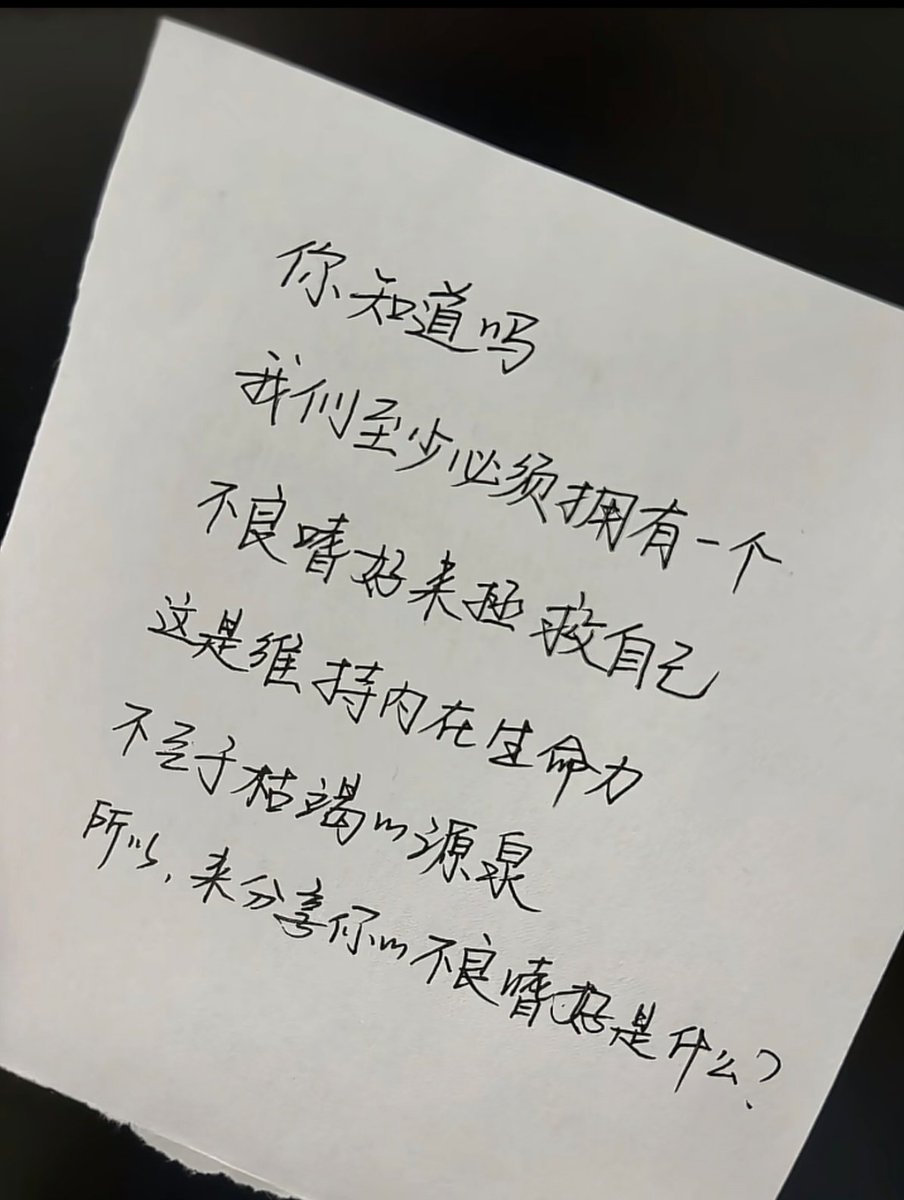 你知道吗
我们至少必须拥有一个
不良嗜好来拯救自己
这是维持内在生命力
不至于枯竭的源泉
所以,来分享你的不良嗜好是什么?